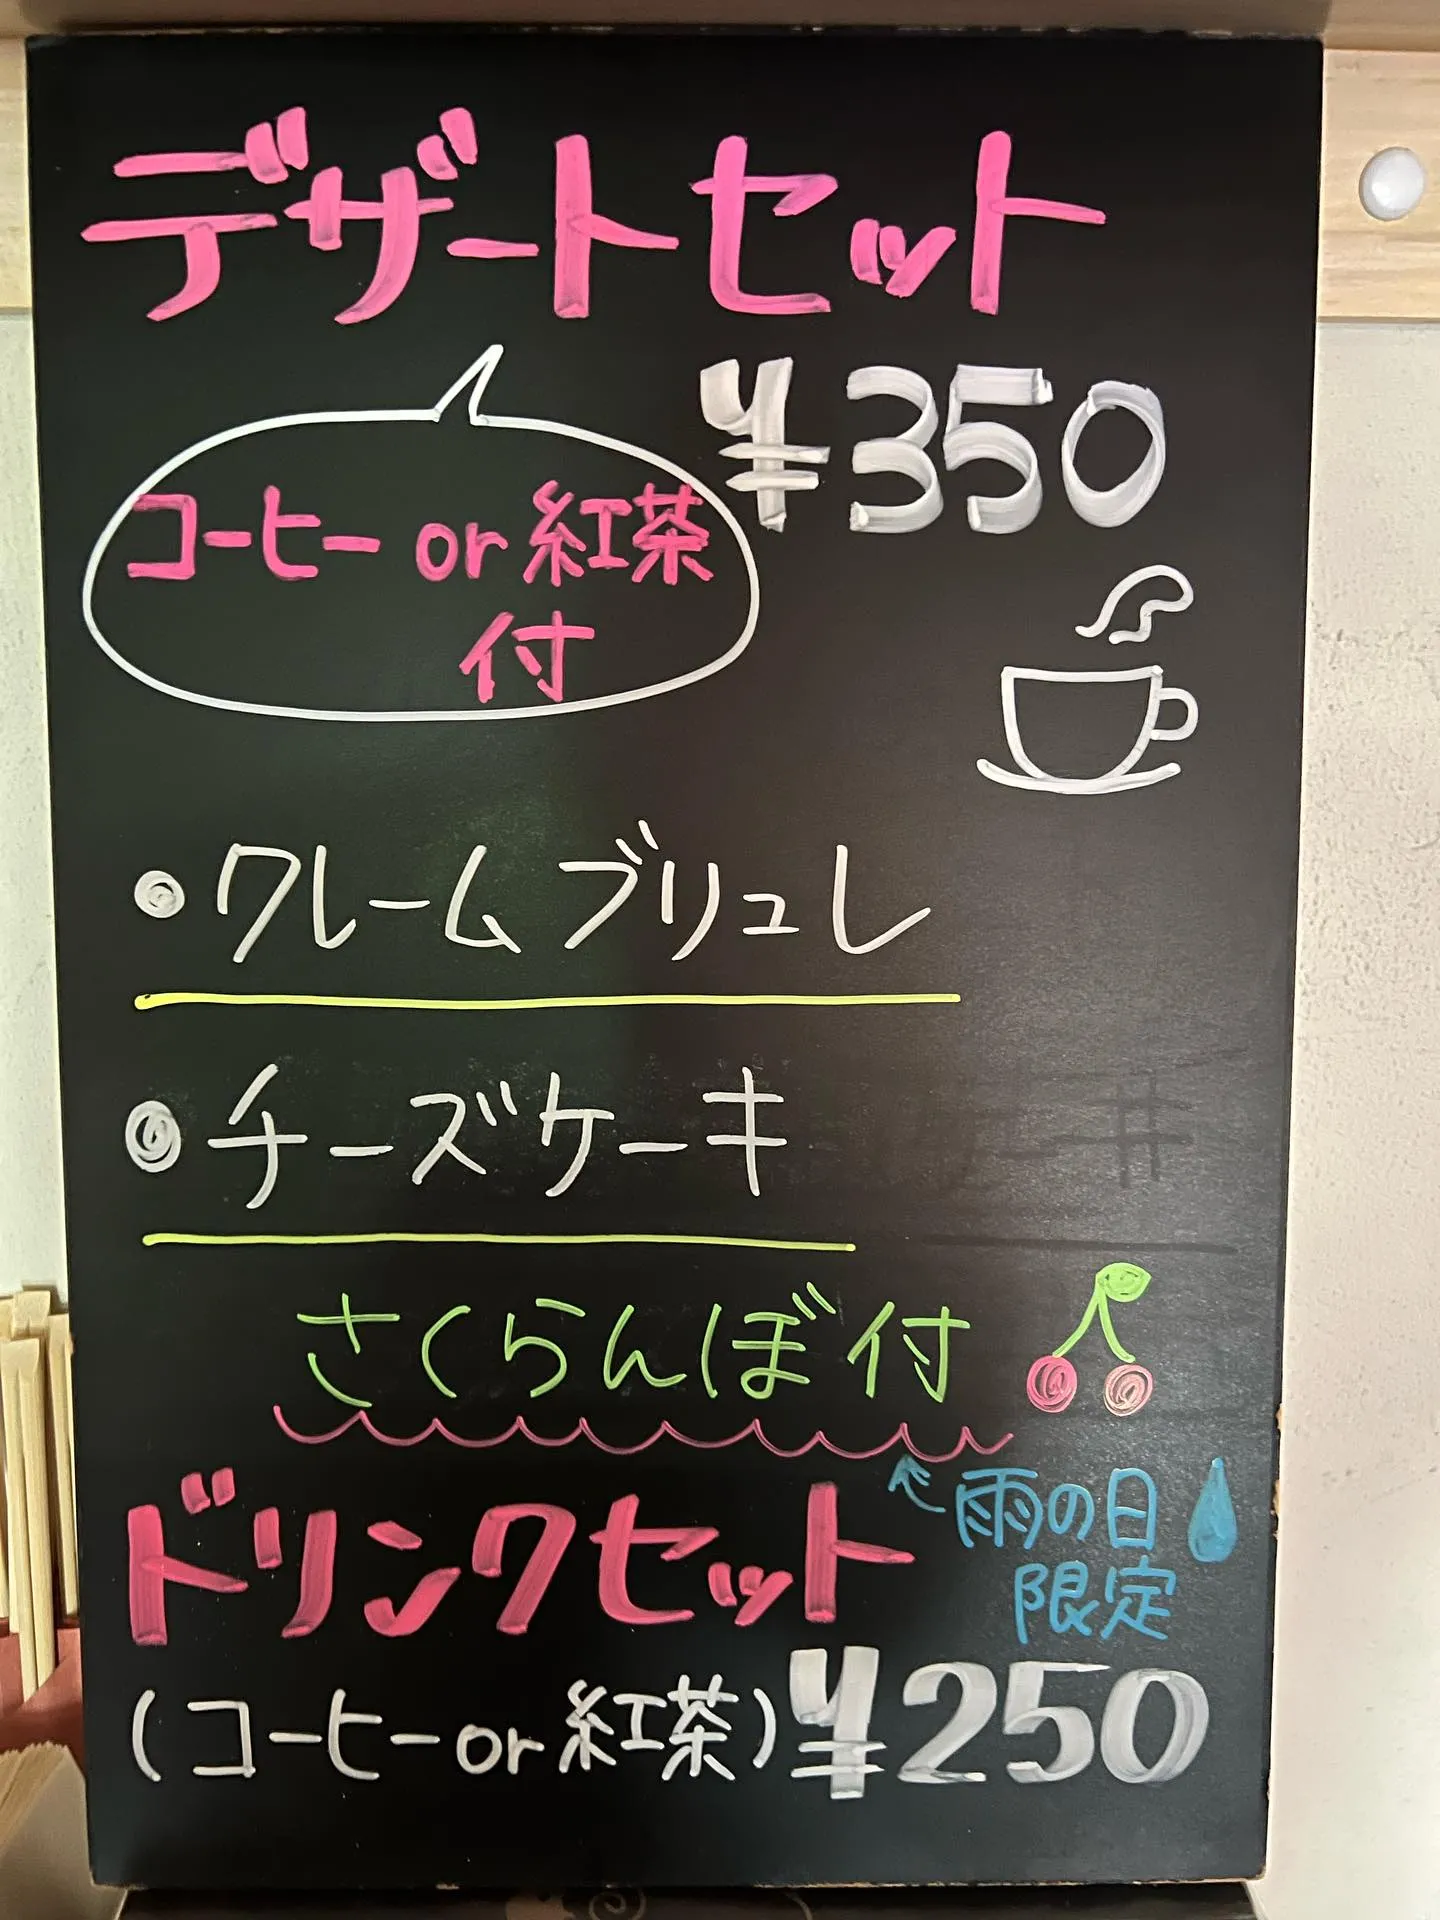 デザートセット
¥350
コーヒー or 紅茶
付
クレームブリュレ
チーズケーキ
さくらんぼ付
雨の日
限定
ドリンクセット
(コーヒー or 紅茶) ¥250